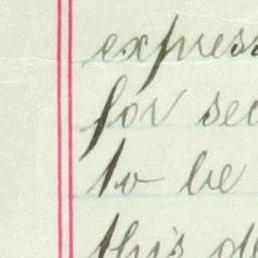 express
for sec
to be
this de